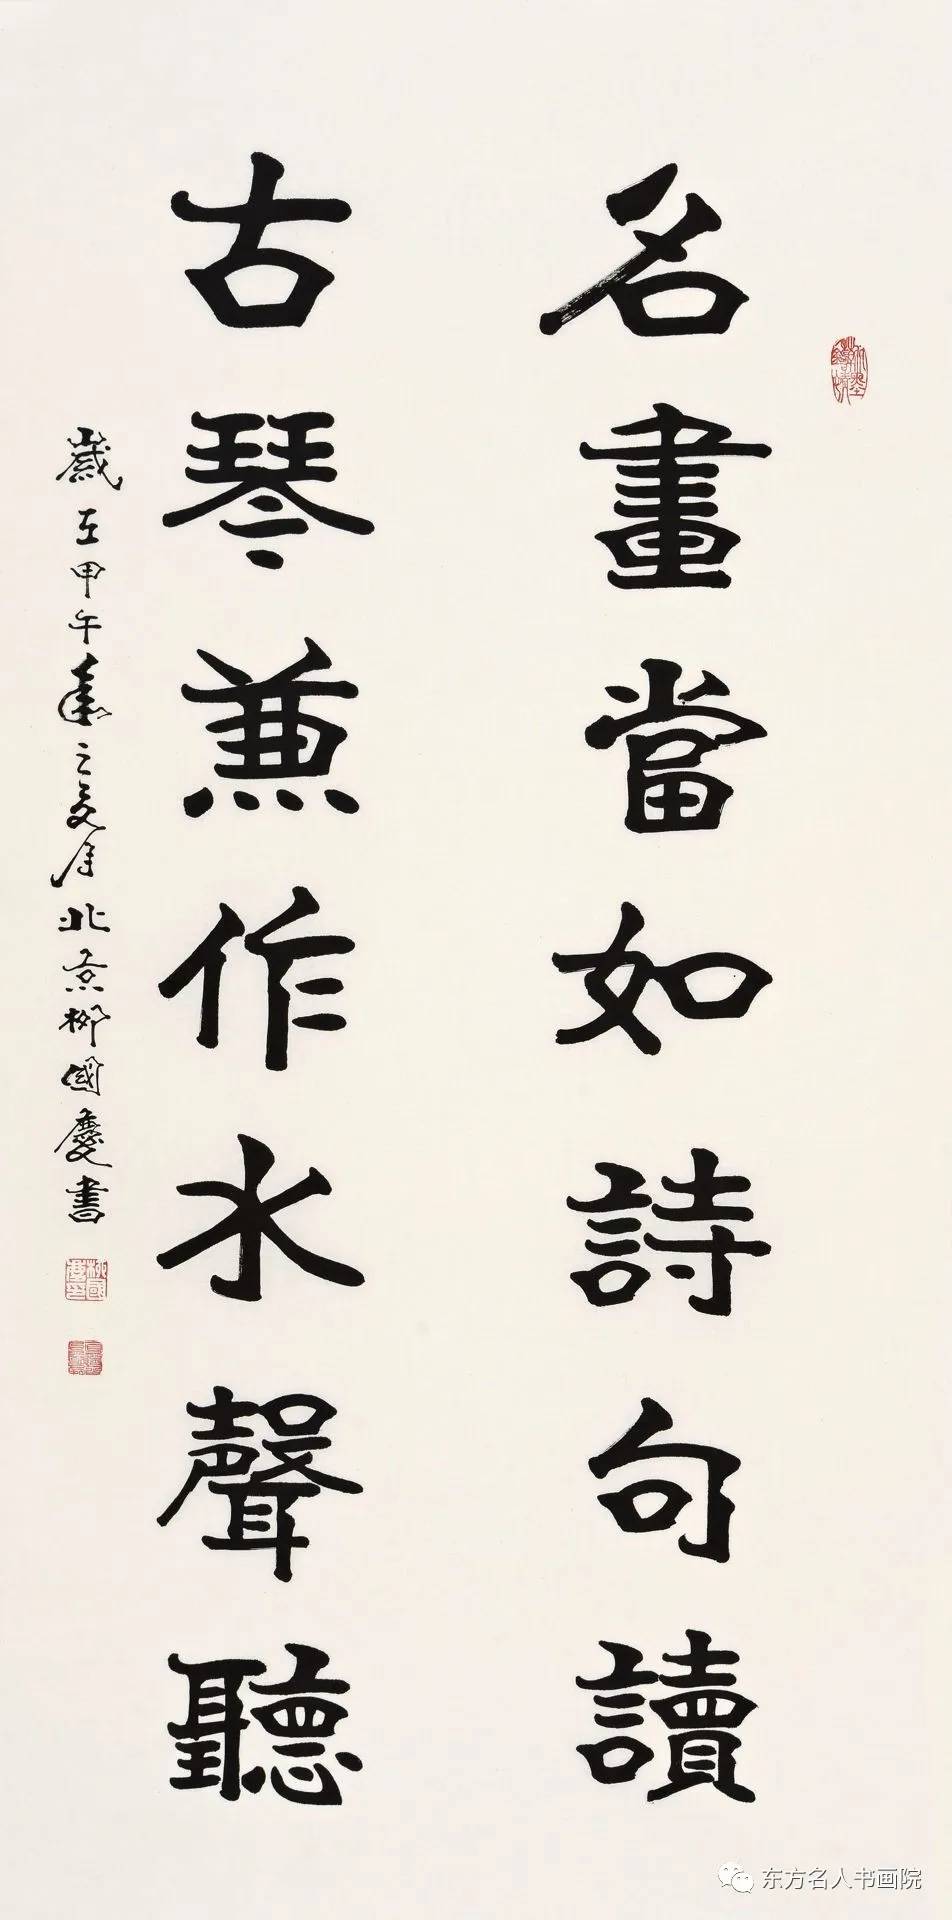 名畫當如詩句讀
古琴兼作水聲聽
歲在甲午春之夏月北京柳國慶書
柳國慶印
东方名人书画院